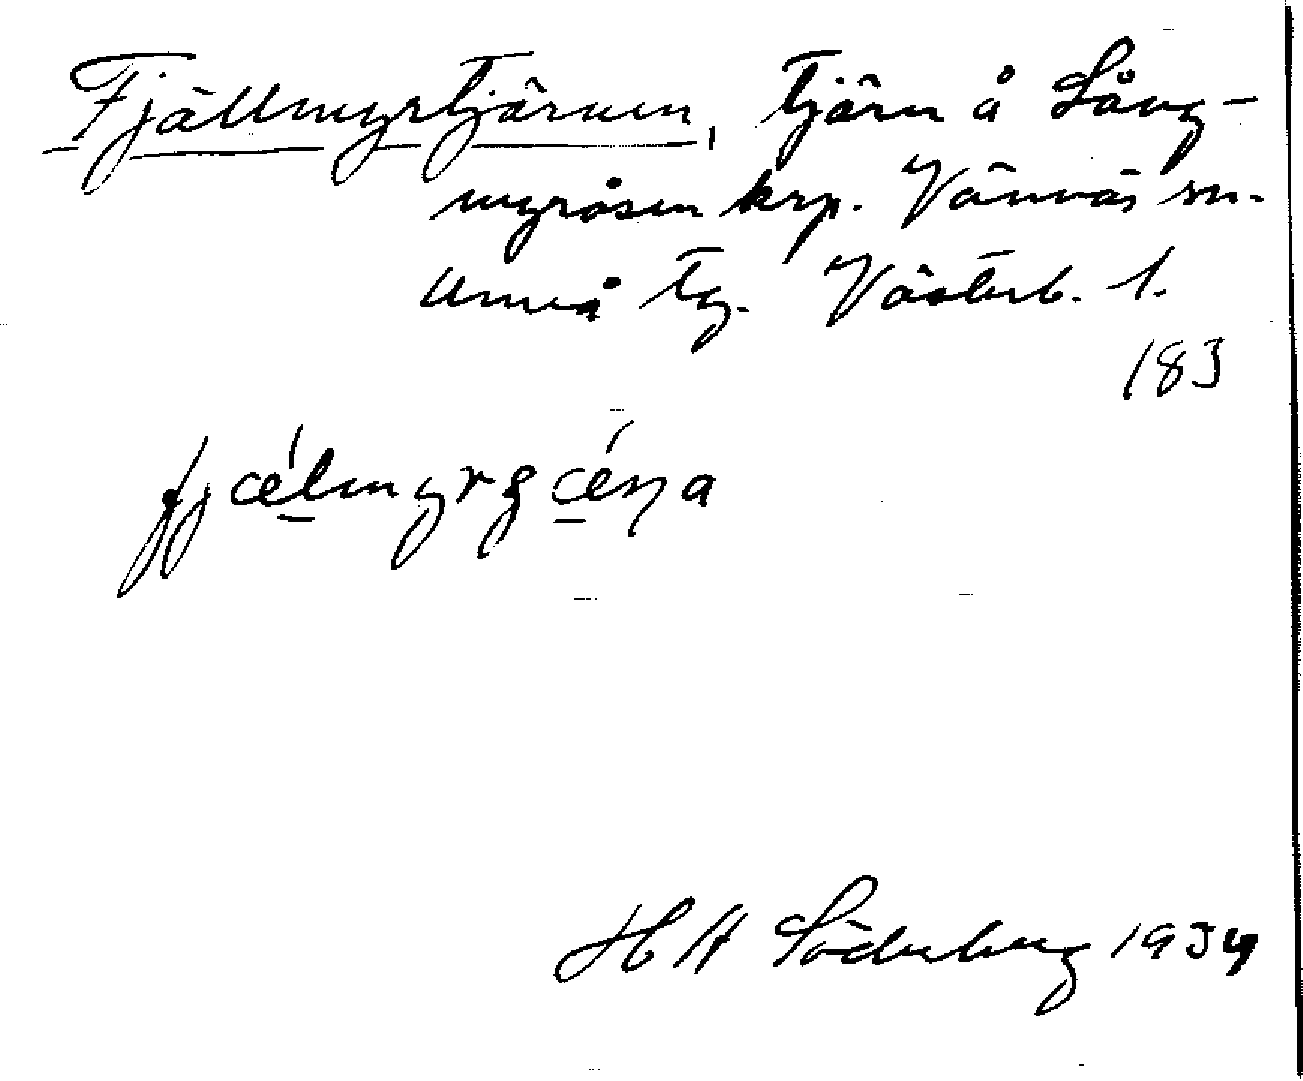 Fjällmyrtjärnen, tjärn å Lång-
myråsen krp. Vännäs sn.
Umeå tg. Västerb. l.
183
H A Söderberg 1934